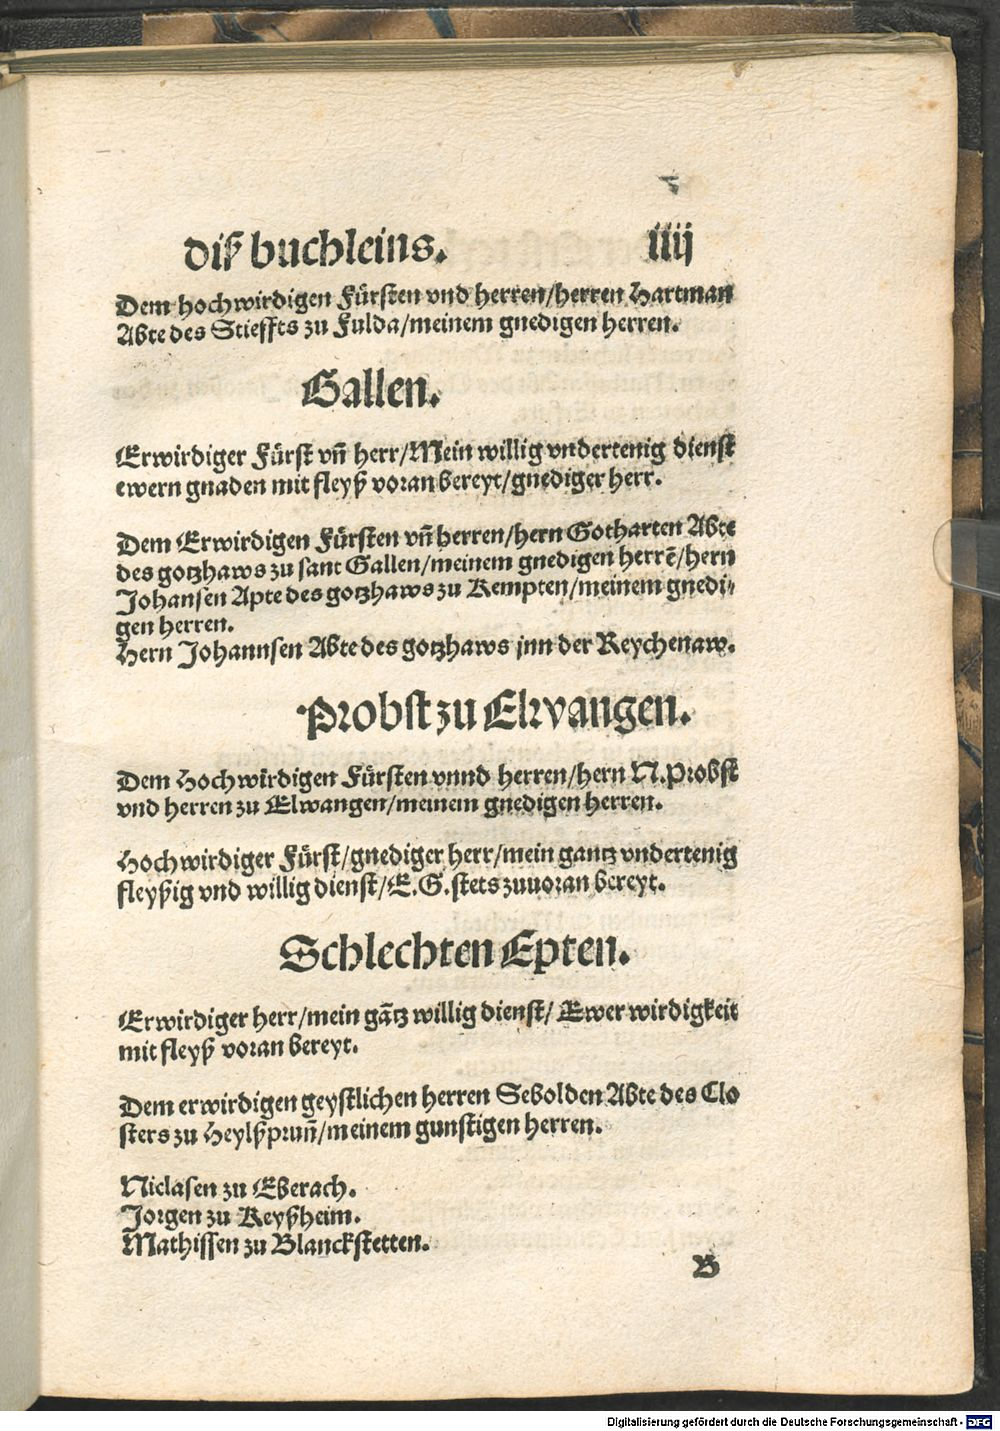 diß buchleins. iiij
Dem hochwirdigen Fürsten vnd herren/herren Hartman
Abte des Stieffts zu Fulda/meinem gnedigen herren.
Gallen.
Erwirdiger Fürst vn̄ herr/Mein willig vndertenig dienst
ewern gnaden mit fleyß voran bereyt/gnediger herr.
Dem Erwirdigen Fürsten vn̄ herren/hern Gotharten Abte
des gotzhaws zu sant Gallen/meinem gnedigen herrē/hern
Johansen Apte des gotzhaws zu Kempten/meinem gnedi-
gen herren.
Hern Johannsen Abte des gotzhaws jnn der Reychenaw.
Probst zu Elwangen.
Dem Hochwirdigen Fürsten vnnd herren/hern N. Probst
vnd herren zu Elwangen/meinem gnedigen herren.
Hochwirdiger Fürst/gnediger herr/mein gantz vndertenig
fleyßig vnd willig dienst/E.G. stets zuuoran bereyt.
Schlechten Epten.
Erwirdiger herr/mein gātz willig dienst/ Ewer wirdigkeit
mit fleyß voran bereyt.
Dem erwirdigen geystlichen herren Sebolden Abte des Clo
sters zu Heylßprun̄/meinem gunstigen herren.
Niclasen zu Eberach.
Jorgen zu Keyßheim.
Mathissen zu Blanckstetten.
B
Digitalisierung gefördert durch die Deutsche Forschungsgemeinschaft - DFG